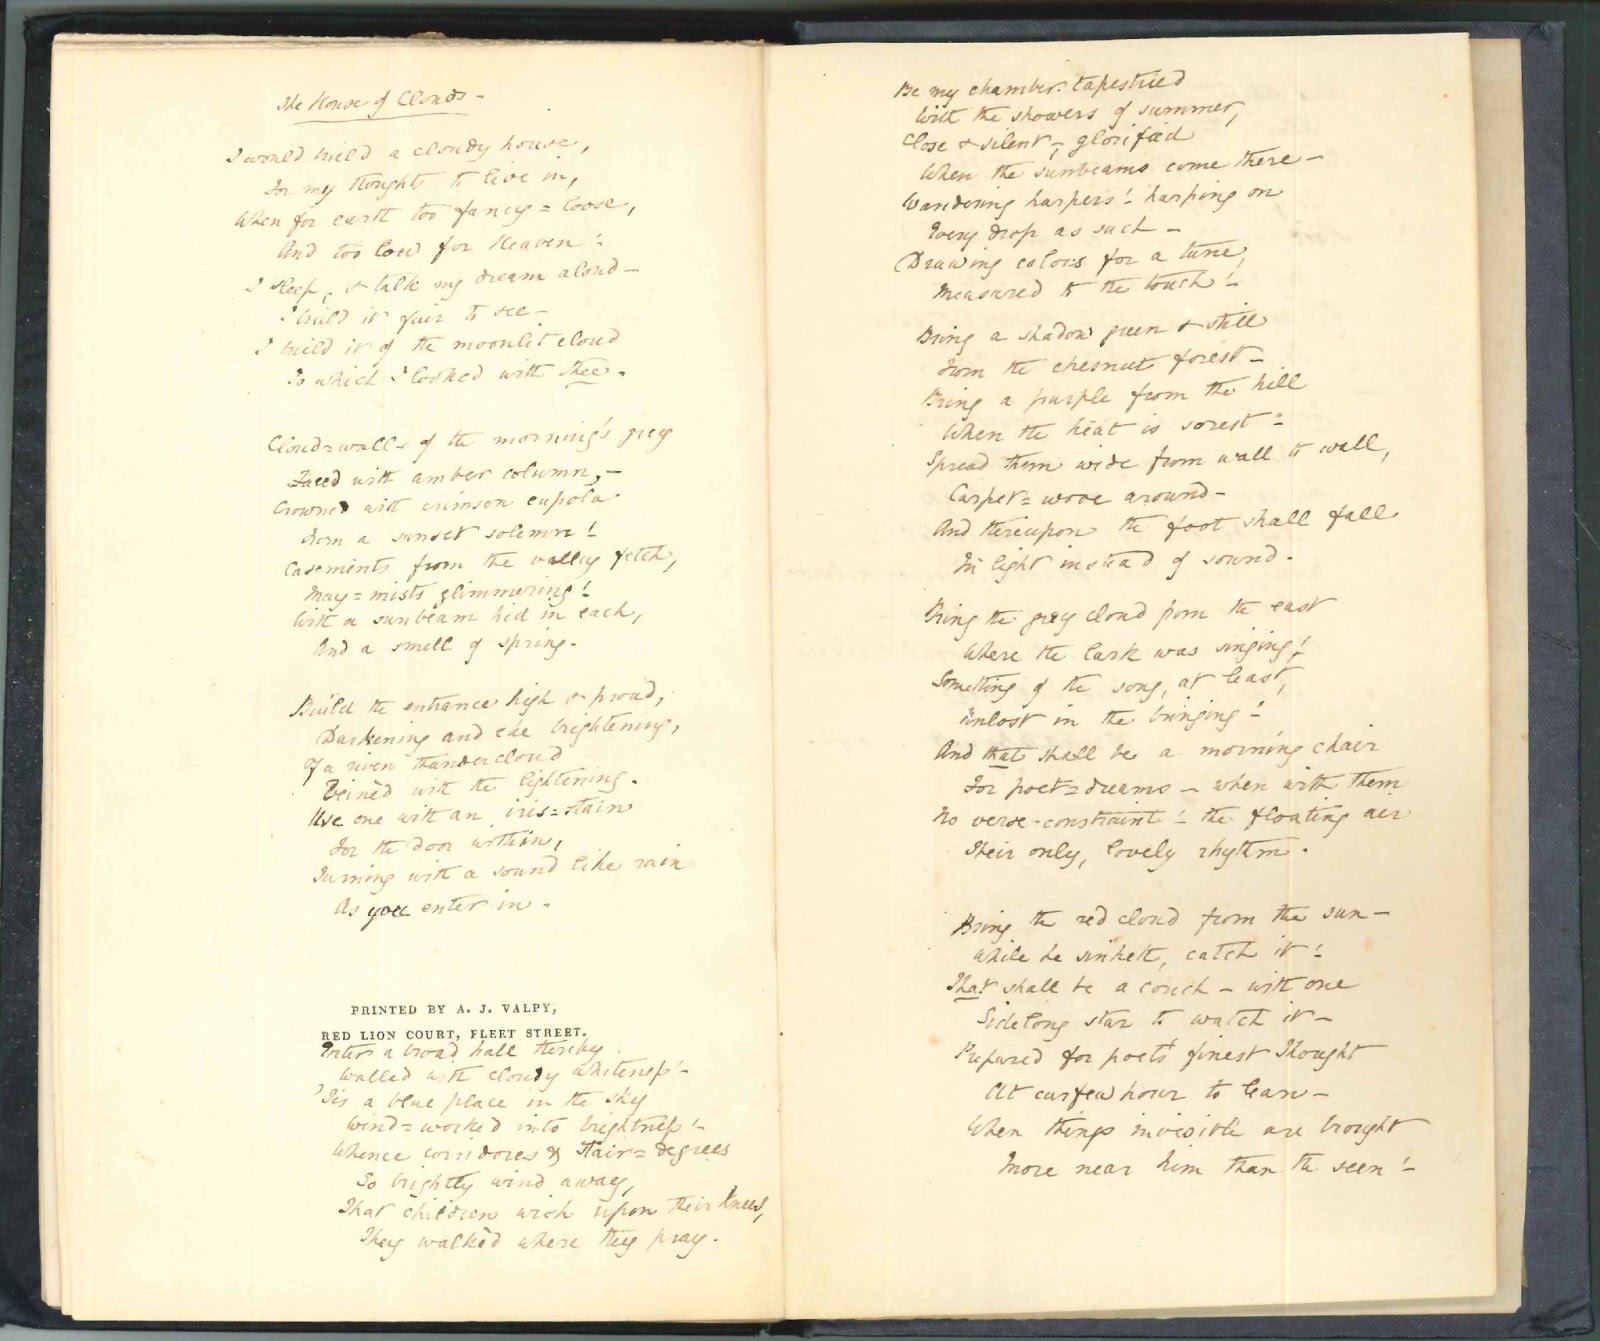 The House of Clouds –
I would build a cloudy house,
For my thoughts to live in,
When for earth too fancy=loose,
And too low for Heaven!
I sleep, & talk my dream aloud –
I build it fair to see –
I build it of the moonlit cloud
To which I looked with thee.
Cloud=walls of the morning's grey
Faced with amber column, –
Crowned with crimson cupola
From a sunset solemn!
Casements from the valley fetch,
May=mists glimmering!
With a sunbeam hid in each,
And a smell of spring.
Build the entrance high & proud,
Darkening and eke brightening,
Of a riven thundercloud
Veinëd with the lightening.
Use one with an iris=stain
For the door within,
Turning with a sound like rain
As you enter in –
PRINTED BY A. J. VALPY,
RED LION COURT, FLEET STREET.
Enter a broad hall thereby
Walled with cloudy whiteness! –
'Tis a blue place in the sky
Wind=worked into brightness! –
Whence corridores & stair=degrees
So brightly wind away,
That children wish upon their knees,
They walked where they pray.
Be my chamber tapestried
With the showers of summer,
Close & silent –, glorified
When the sunbeams come there –
Wandering harpers! harping on
Every drop as such –
Drawing colors for a tune,
Measured to the touch! –
Bring a shadow green & still
From the chesnut forest –
Bring a purple from the hill
When the heat is sorest –
Spread them wide from wall to wall,
Carpet=wove around –
And thereupon the foot shall fall
In light instead of sound.
Bring the grey cloud from the east
Where the lark was singing! –
Something of the song, at least,
Unlost in the bringing! –
And that shall be a morning chair
For poet=dreams – when with them
No verse-constraint! – the floating air
Their only, lovely rhythm.
Bring the red cloud from the sun –
While he sinketh, catch it! –
That shall be a couch – with one
Sidelong star to watch it –
Prepared for poet's finest Thought
At curfew hour to lean –
When things invisible are brought
More near him than the seen! –